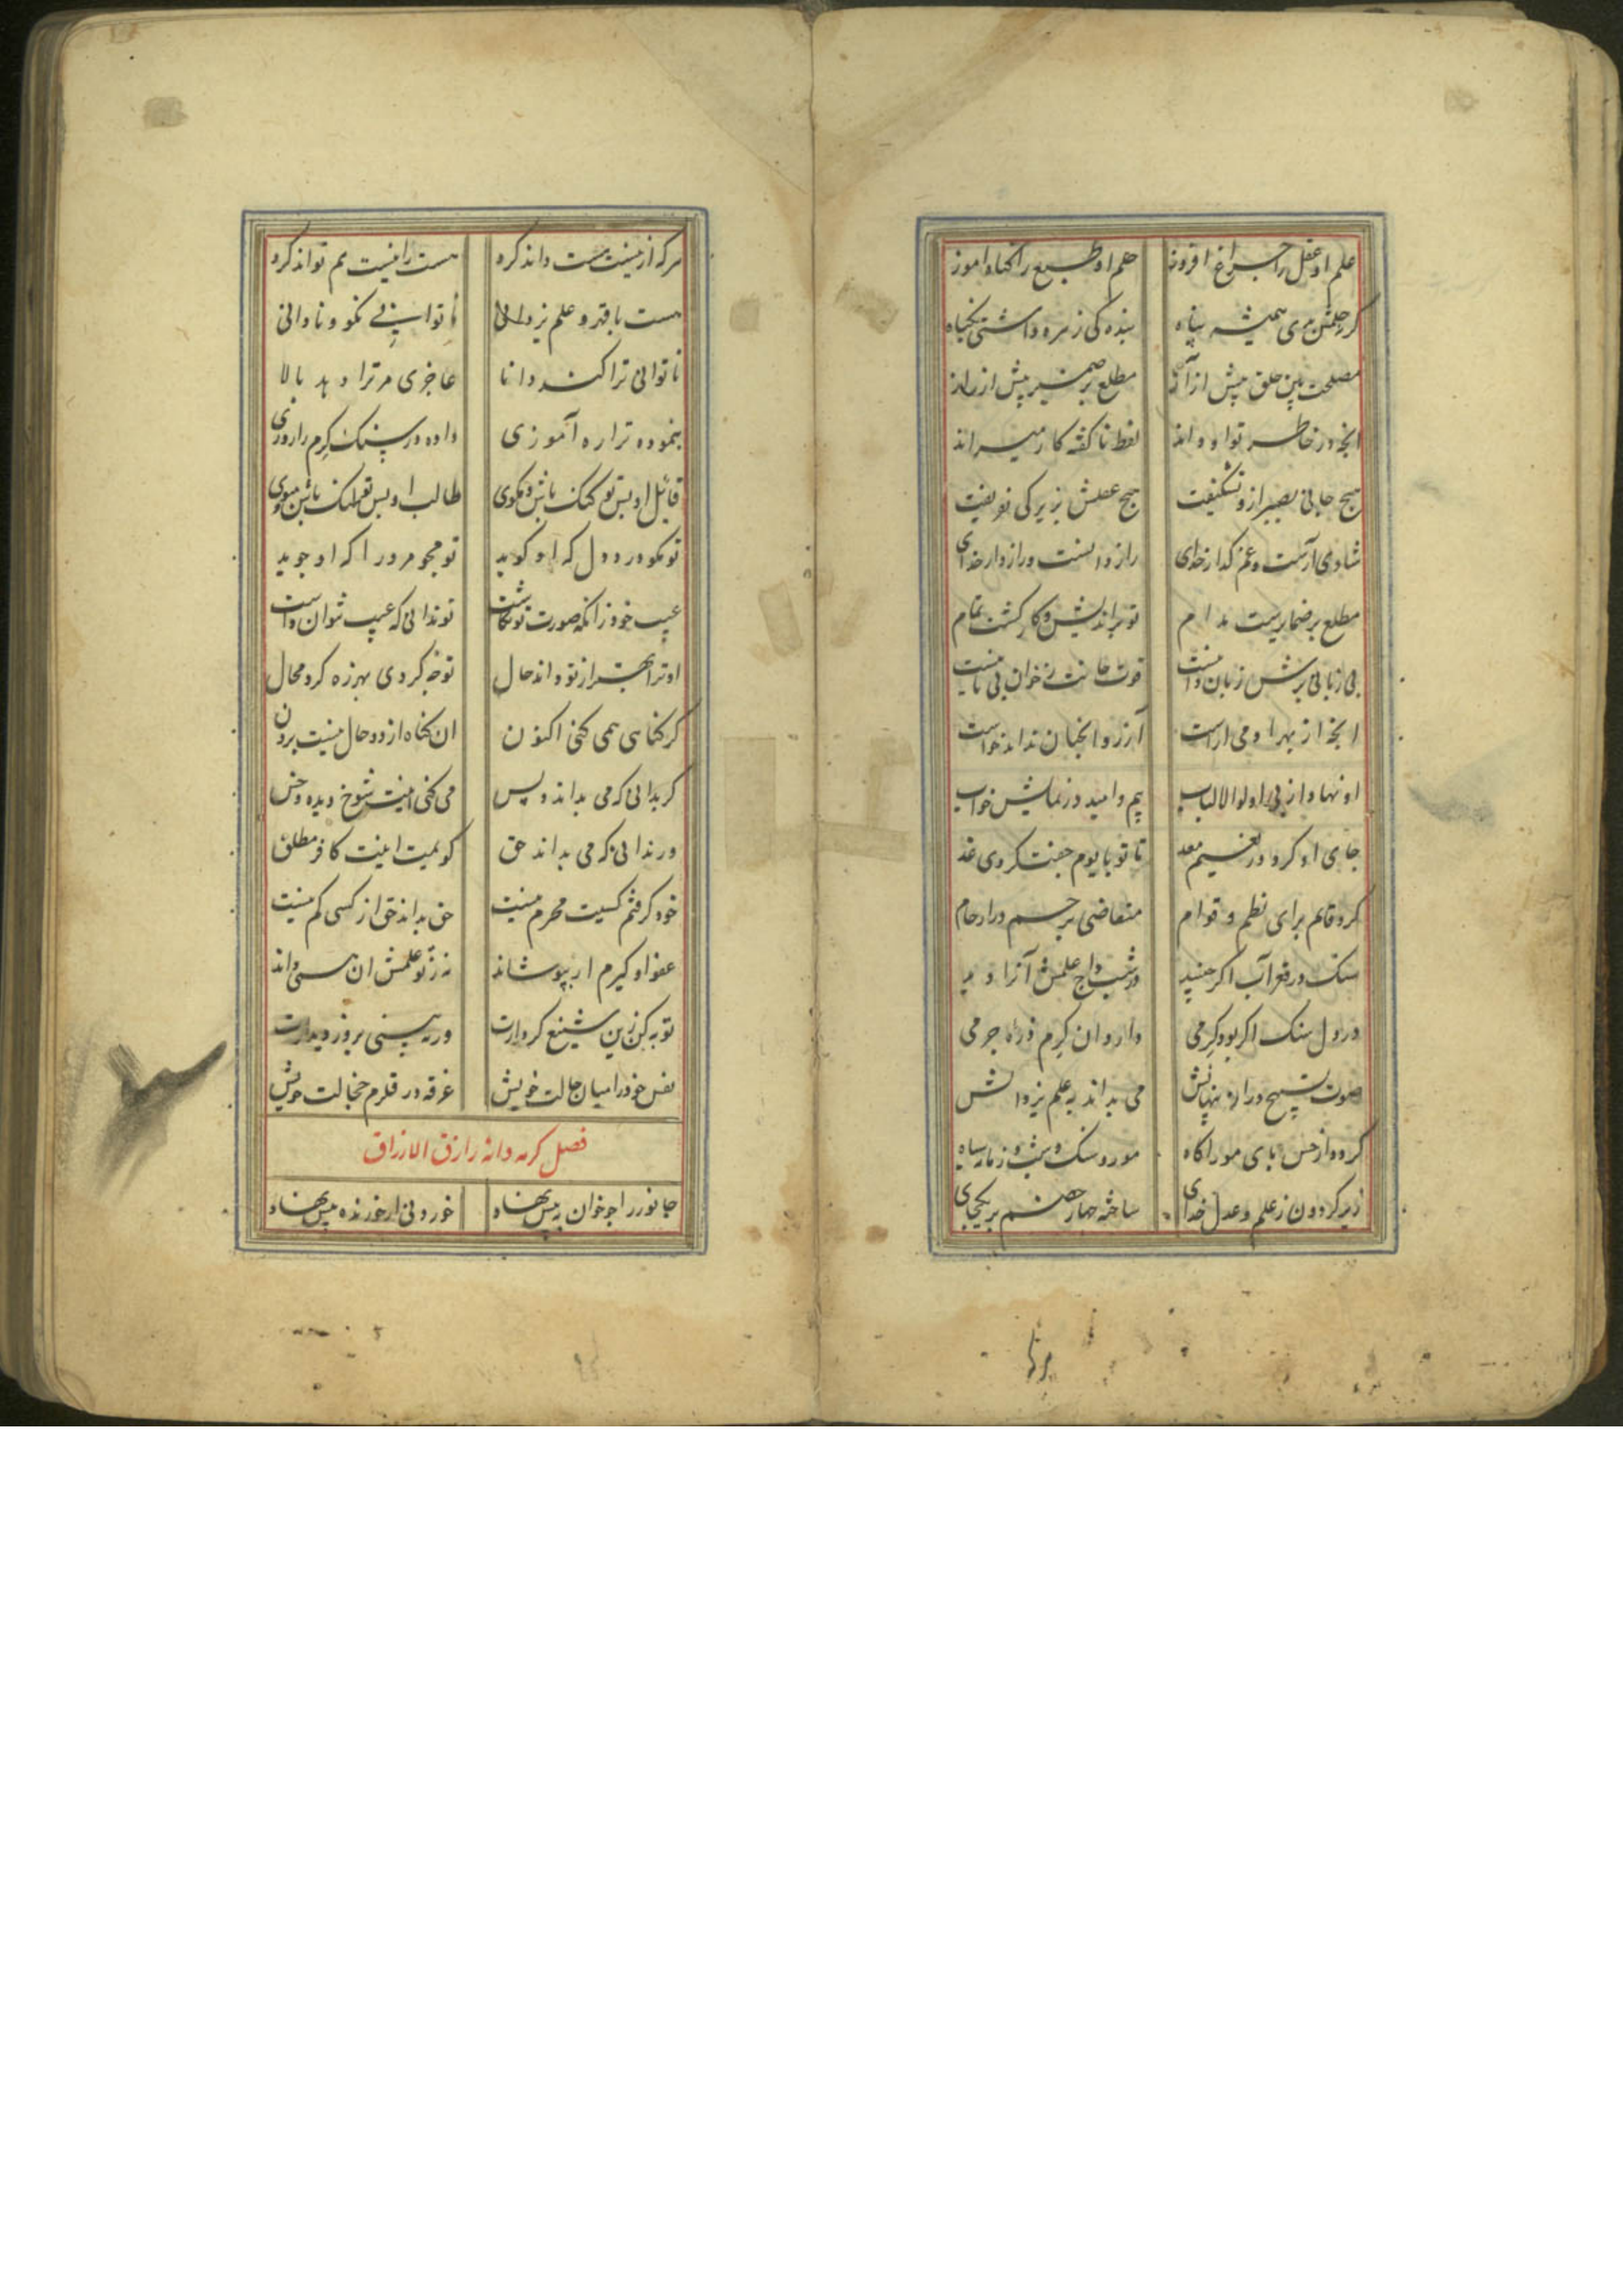 علم او عقل را چراغ افروز حلم او طبع را گناه آموز
گر نه حلمش بدی همیشه پناه بنده کی زهره داشتی بگناه
مصلحت بین خلق پیش از آز مطلع بر ضمیر پیش از راز
انچه در خاطر تو او داند لفظ ناگفته کار میراند
هیچ جانی بصبر ازو نشکیفت هیچ عقلش بزیرکی نفریفت
شادی آرست و غم گداز خدای راز دانست و رازدار خدای
مطلع بر ضمایرست مدام تو براندیش و کار گشت تمام
بی زبانی برش زبان دانیست قوت جانت ز خوان بی نانیست
انچه از بهر او می اراست آرزو آنچنان نداند خواست
او نهاد از پی اولوالالباب بیم و امید در نمایش خواب
جای او کرد در نعیم معد تا تو با یوم جفت کردی غد
کرد قائم برای نظم و قوام متقاضی بر جسم در ارحام
سنگ در قعر آب اگر جنبید در شب داج علمش آنرا دید
در دل سنگ اگر بود کرمی دارد آن کرم ذره جرمی
صوت تسبیح و راز پنهانش می بداند به علم یزدانش
کرده از حس پای مور آگاه مور و سنگ و شب و زمانه سیاه
زیر گردون ز علم و عدل خدای ساخته چهار خصم بر یکجای
هر که از نیست هست داند کرد هست را نیست هم تواند کرد
هست با قهر و علم یزدانی ناتوانی نکو و نادانی
ناتوانی ترا کند دانا عاجزی مر ترا دهد بالا
بنموده ترا ره آموزی داده در سنگ کرم را روزی
قائل او بس تو گنگ باش و مگوی طالب او بس تو لنگ باش و مپوی
تو مگو درد دل که او گوید تو مجو مر ورا که او جوید
عیب خود زانکه صورت تو نگاشت تو ندانی که عیب نتوان داشت
او ترا بهتر از تو داند حال تو چه گردی بهرزه گرد محال
گر گناهی همی کنی اکنون ان گناه از دو حال نیست برون
گر بدانی که می بداند و پس می کنی اینت شوخ دیده و خس
ور ندانی که می بداند حق گویمت اینت کافر مطلق
خود گرفتم کسیت محرم نیست حق بداند حق از کسی کم نیست
عفو او گیرم ار بپوشاند نه ز تو علمش ان همی داند
توبه کن زین شنیع کردارت ورنه بینی بروز دیدارت
نفس خود را میان حالت خویش غرقه در قلزم خجالت خویش
فصل کرمه و انه رازق الارزاق
جانور را چو خوان به پیش نهاد خوردنی از خورنده بیش نهاد